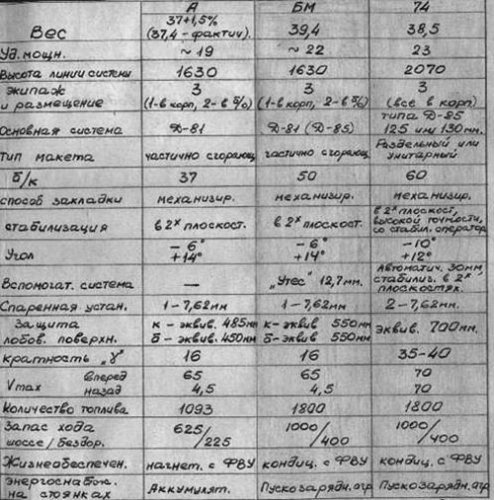 А БМ 74
Вес 37+1,5% (37,4-фактич). 39,4 38,5
Уд. мощн. ~ 19 ~ 22 23
Высота линии системы 1630 1630 2070
экипаж и размещение 3 (1-в корп, 2-в б/о) 3 (1-в корп, 2-в б/о) 3 (все в корп)
Основная система Д-81 Д-81 (Д-85) типа Д-85 125 или 130мм.
тип макета частично сгорающ. частично сгорающ. Раздельный или унитарный
б/к 37 50 60
способ закладки механизир. механизир. механизир.
стабилизация в 2х плоскост. в 2х плоскост. в 2х плоскост, высокой точности, со стабил. оператор
Угол -6° +14° -6° +14° -10° +12°
Вспомогат. система — „Утес" 12,7мм. Автоматич. 30мм, стабилиз. в 2х плоскостях.
Спаренная устан. 1-7,62мм 1-7,62мм 2-7,62мм.
Защита лобов. поверхн. к - эквив. 485мм б - эквив. 450мм к- эквив 550мм б- эквив 550мм эквив. 700мм.
кратность „γ" 16 16 35-40
Vmax вперед 65 65 70
назад 4,5 4,5 70
Количество топлива 1093 1800 1800
Запас хода шоссе/бездор. 625/225 1000/400 1000/400
Жизнеобеспечен. нагнет. с ФВУ кондиц. с ФВУ кондиц. с ФВУ
энергоснабж. на стоянках Аккумулят. Пускозарядн.агр Пускозарядн.агр